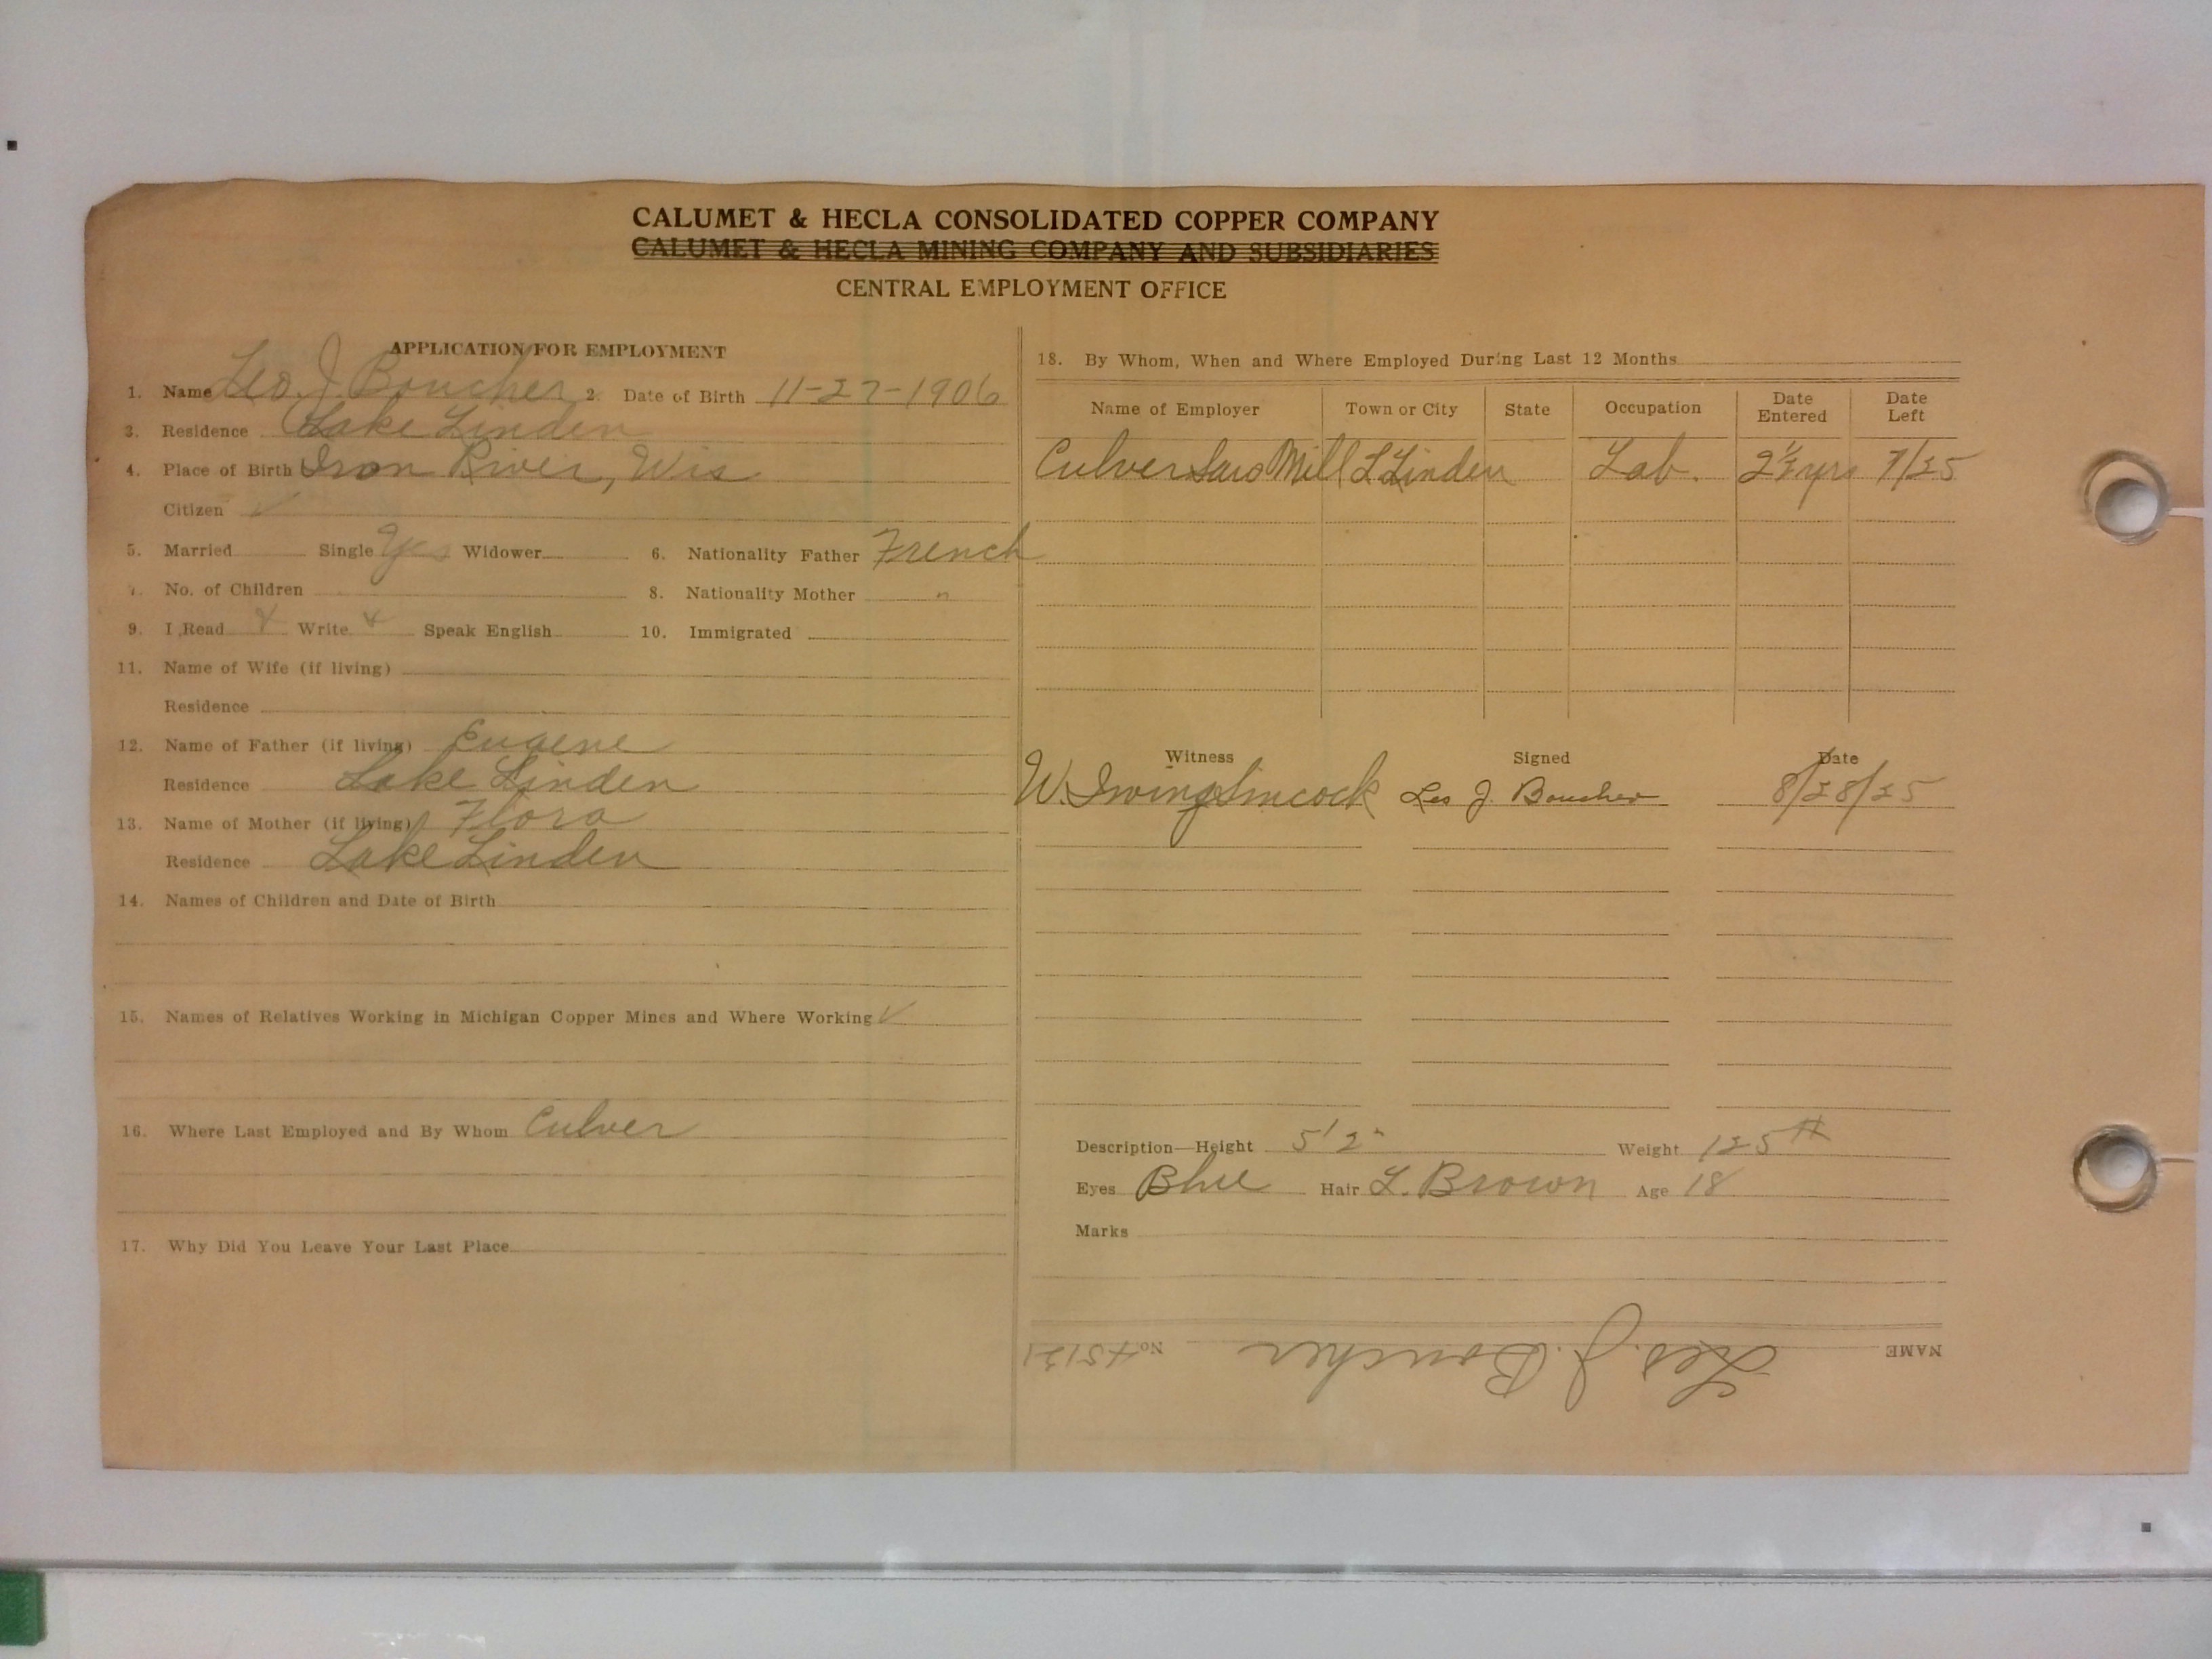 CALUMET & HECLA CONSOLIDATED COPPER COMPANY
CALUMET & HECLA MINING COMPANY AND SUBSIDIARIES
CENTRAL EMPLOYMENT OFFICE
APPLICATION FOR EMPLOYMENT
1. Name Leo. J. Boucher 2. Date of Birth 11-27-1906
3. Residence Lake Linden
4. Place of Birth Iron River, Wis
Citizen ✓
5. Married Single Yes Widower 6. Nationality Father French
7. No. of Children 8. Nationality Mother "
9. I Read Write Speak English 10. Immigrated
11. Name of Wife (if living)
Residence
12. Name of Father (if living) Eugene
Residence Lake Linden
13. Name of Mother (if living) Flora
Residence Lake Linden
14. Names of Children and Date of Birth
15. Names of Relatives Working in Michigan Copper Mines and Where Working ✓
16. Where Last Employed and By Whom Culver
17. Why Did You Leave Your Last Place
18. By Whom, When and Where Employed During Last 12 Months
Name of Employer Town or City State Occupation Date Entered Date Left
Culver Saw Mill L Linden Lab. 2½ yrs 7/25
Witness Signed Date
W. Irving Sincock Leo J. Boucher 8/28/25
Description—Height 5'2" Weight 125#
Eyes Blue Hair L. Brown Age 18
Marks
NAME Leo. J. Boucher No.